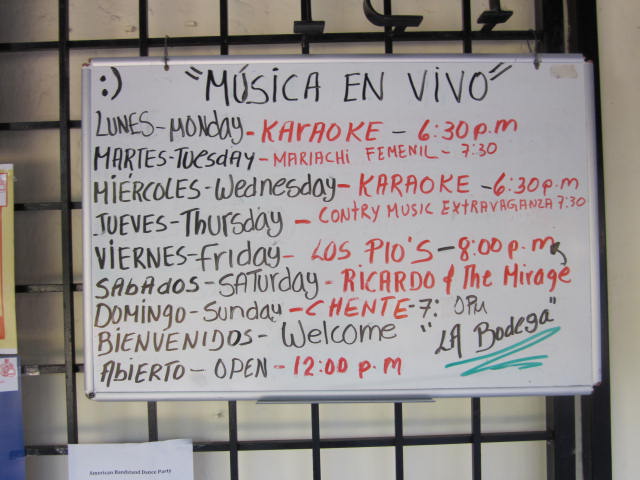 :) "MÚSICA EN VIVO"
LUNES-MONDAY-KARAOKE - 6:30 p.m
MARTES-TUESDAY-MARIACHi FEMENIL - 7:30
MIÉRCOLES-Wednesday-KARAOKE -6:30 p.m
JUEVES-Thursday - CONTRY MUSIC EXTRAVAGANZA 7:30
VIERNES-Friday- LOS PIO'S - 8:00 p.m
SAbADOS-SATurday-RICARDO & The Mirage
DOMINGO-Sunday-CHENTE-7: OPM
BIENVENIDOS- Welcome "LA Bodega"
AbiERTO- OPEN - 12:00 p.m
American Bandstand Dance Party